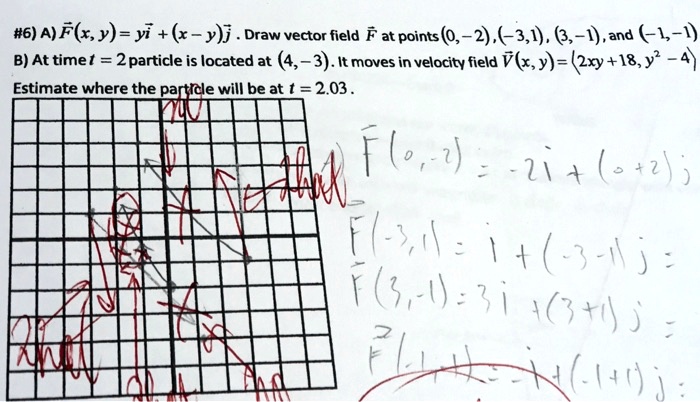 #6) A) F⃗(x, y) = yi⃗ + (x − y)j⃗ . Draw vector field F⃗ at points (0, −2), (−3,1), (3, −1), and (−1,−1)
B) At time t = 2 particle is located at (4, −3). It moves in velocity field V⃗(x, y) = (2xy + 18, y² − 4)
Estimate where the particle will be at t = 2.03.
no
F(0,-2) = -2i + (0+2)j
2hat
F(-3,1) = i + (-3-1)j =
F(3,-1) = 3i + (3+1)j =
F(-1,-1) = -i + (-1+1)j =
2hat